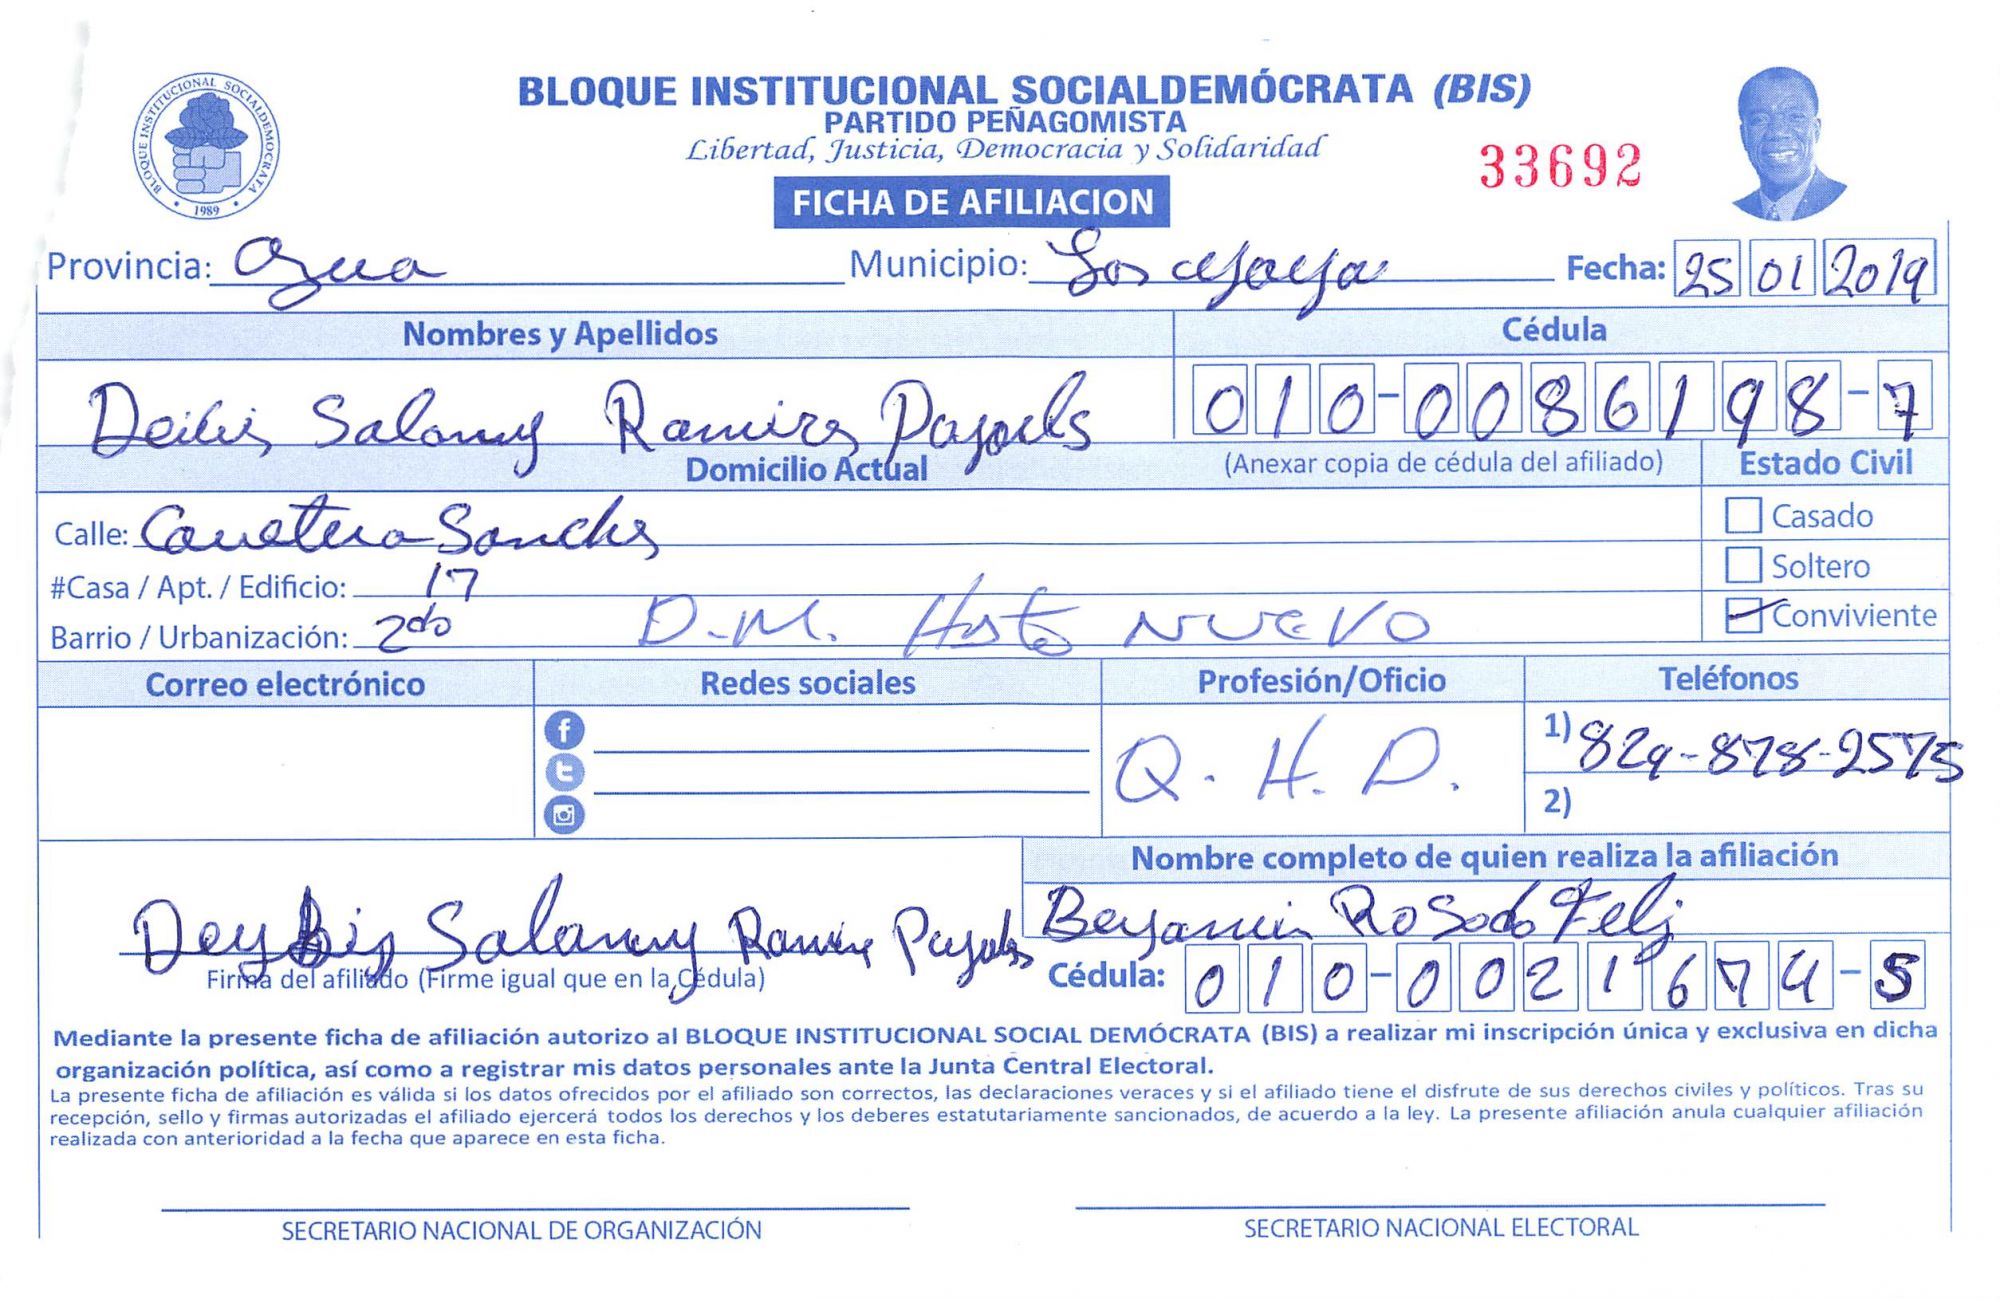 BLOQUE INSTITUCIONAL SOCIALDEMOCRATA
1989
BLOQUE INSTITUCIONAL SOCIALDEMÓCRATA (BIS)
PARTIDO PEÑAGOMISTA
Libertad, Justicia, Democracia y Solidaridad
33692
FICHA DE AFILIACION
Provincia: Azua Municipio: Los Fecha: 25 01 2019
Nombres y Apellidos Cédula
Salomy Ramirez 010-0086198-7
Domicilio Actual (Anexar copia de cédula del afiliado) Estado Civil
Calle: Carretera Sanchez Casado
#Casa / Apt. / Edificio: 17 Soltero
Barrio / Urbanización: 2do D.M. Hato NUEVO Conviviente
Correo electrónico Redes sociales Profesión/Oficio Teléfonos
Q. H. D. 1) 829-878-2575
2)
Nombre completo de quien realiza la afiliación
Deybis Salomy Ramirez Benjamin Rosado Feliz
Firma del afiliado (Firme igual que en la Cédula) Cédula: 010-0021674-5
Mediante la presente ficha de afiliación autorizo al BLOQUE INSTITUCIONAL SOCIAL DEMÓCRATA (BIS) a realizar mi inscripción única y exclusiva en dicha
organización política, así como a registrar mis datos personales ante la Junta Central Electoral.
La presente ficha de afiliación es válida si los datos ofrecidos por el afiliado son correctos, las declaraciones veraces y si el afiliado tiene el disfrute de sus derechos civiles y políticos. Tras su
recepción, sello y firmas autorizadas el afiliado ejercerá todos los derechos y los deberes estatutariamente sancionados, de acuerdo a la ley. La presente afiliación anula cualquier afiliación
realizada con anterioridad a la fecha que aparece en esta ficha.
SECRETARIO NACIONAL DE ORGANIZACIÓN SECRETARIO NACIONAL ELECTORAL